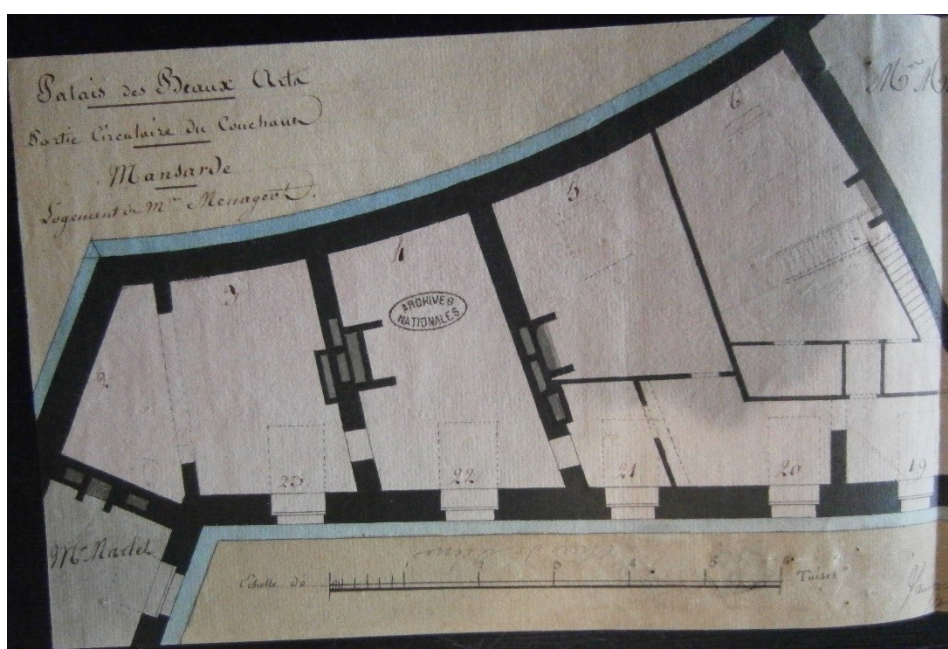 Palais des Beaux Arts
Partie Circulaire du Couchant
Mansarde
Logement de Mr Menageot.
6
5
4
3
2
ARCHIVES
NATIONALES
23
22
21
20
19
Mr Marlet
Echelle de
1 2 3 4 5 6 Toises